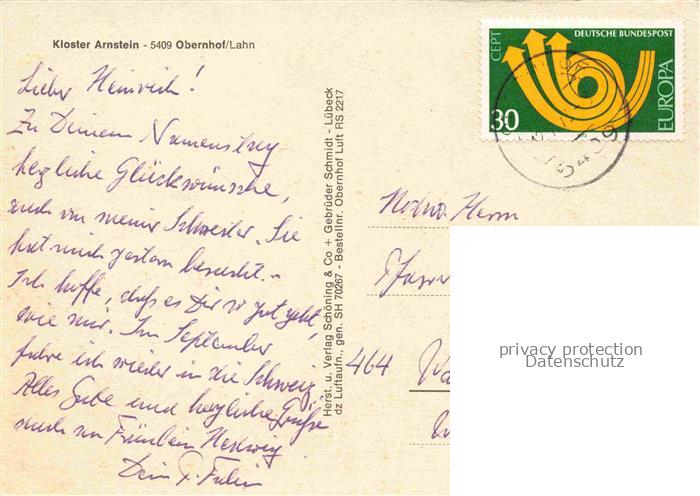 Kloster Arnstein - 5409 Obernhof/Lahn
Lieber Heinrich!
Zu Deinem Namenstag
herzliche Glückwünsche,
auch von meiner Schwester. Sie
hat mich gestern besucht.-
Ich hoffe, daß es Dir so gut geht,
wie mir. Im September
fahre ich wieder in die Schweiz.
Alles Gute und herzliche Grüße
auch von Fräulein Hedwig
Dein P.
Herst. u. Verlag Schöning & Co + Gebrüder Schmidt - Lübeck
dz Luftaufn., gen. SH 70267 - Bestellnr. Obernhof Luft RS 2217
CEPT
DEUTSCHE BUNDESPOST
EUROPA
30
5409
Herrn
464
privacy protection
Datenschutz